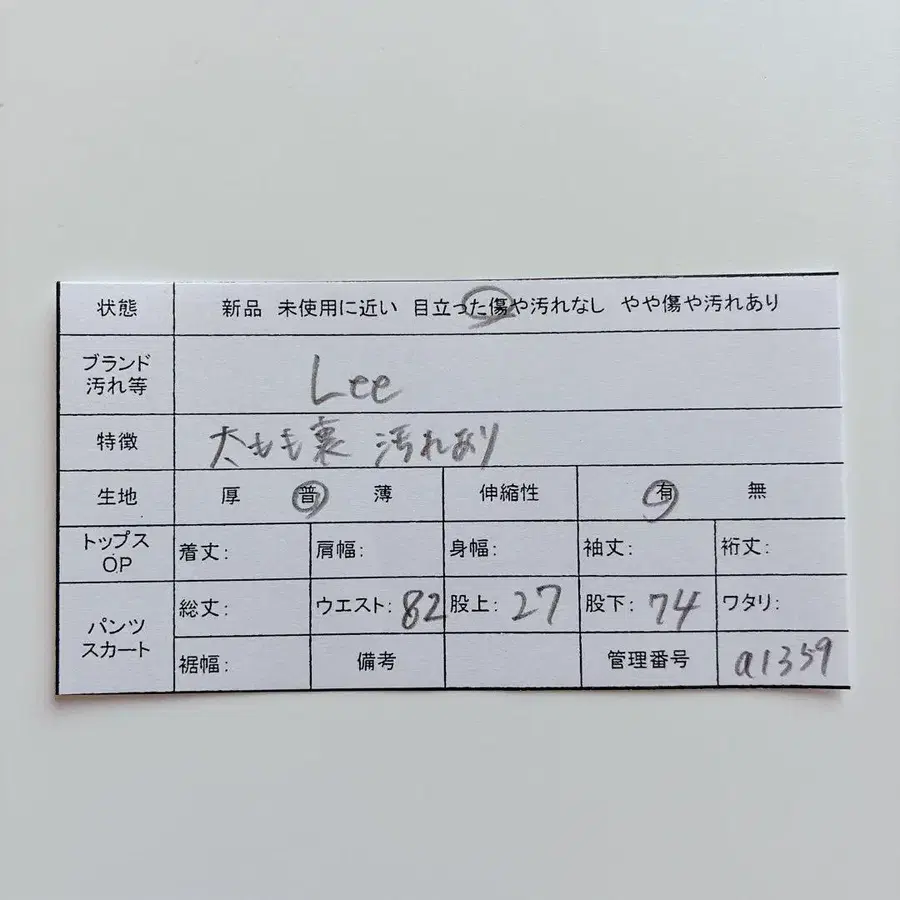 状態 新品 未使用に近い 目立った傷や汚れなし やや傷や汚れあり
ブランド
汚れ等
Lee
特徴 太もも裏 汚れあり
生地 厚 普 薄 伸縮性 有 無
トップス
O.P
着丈: 肩幅: 身幅: 袖丈: 裄丈:
パンツ
スカート
総丈: ウエスト: 82 股上: 27 股下: 74 ワタリ:
裾幅: 備考 管理番号 a1359